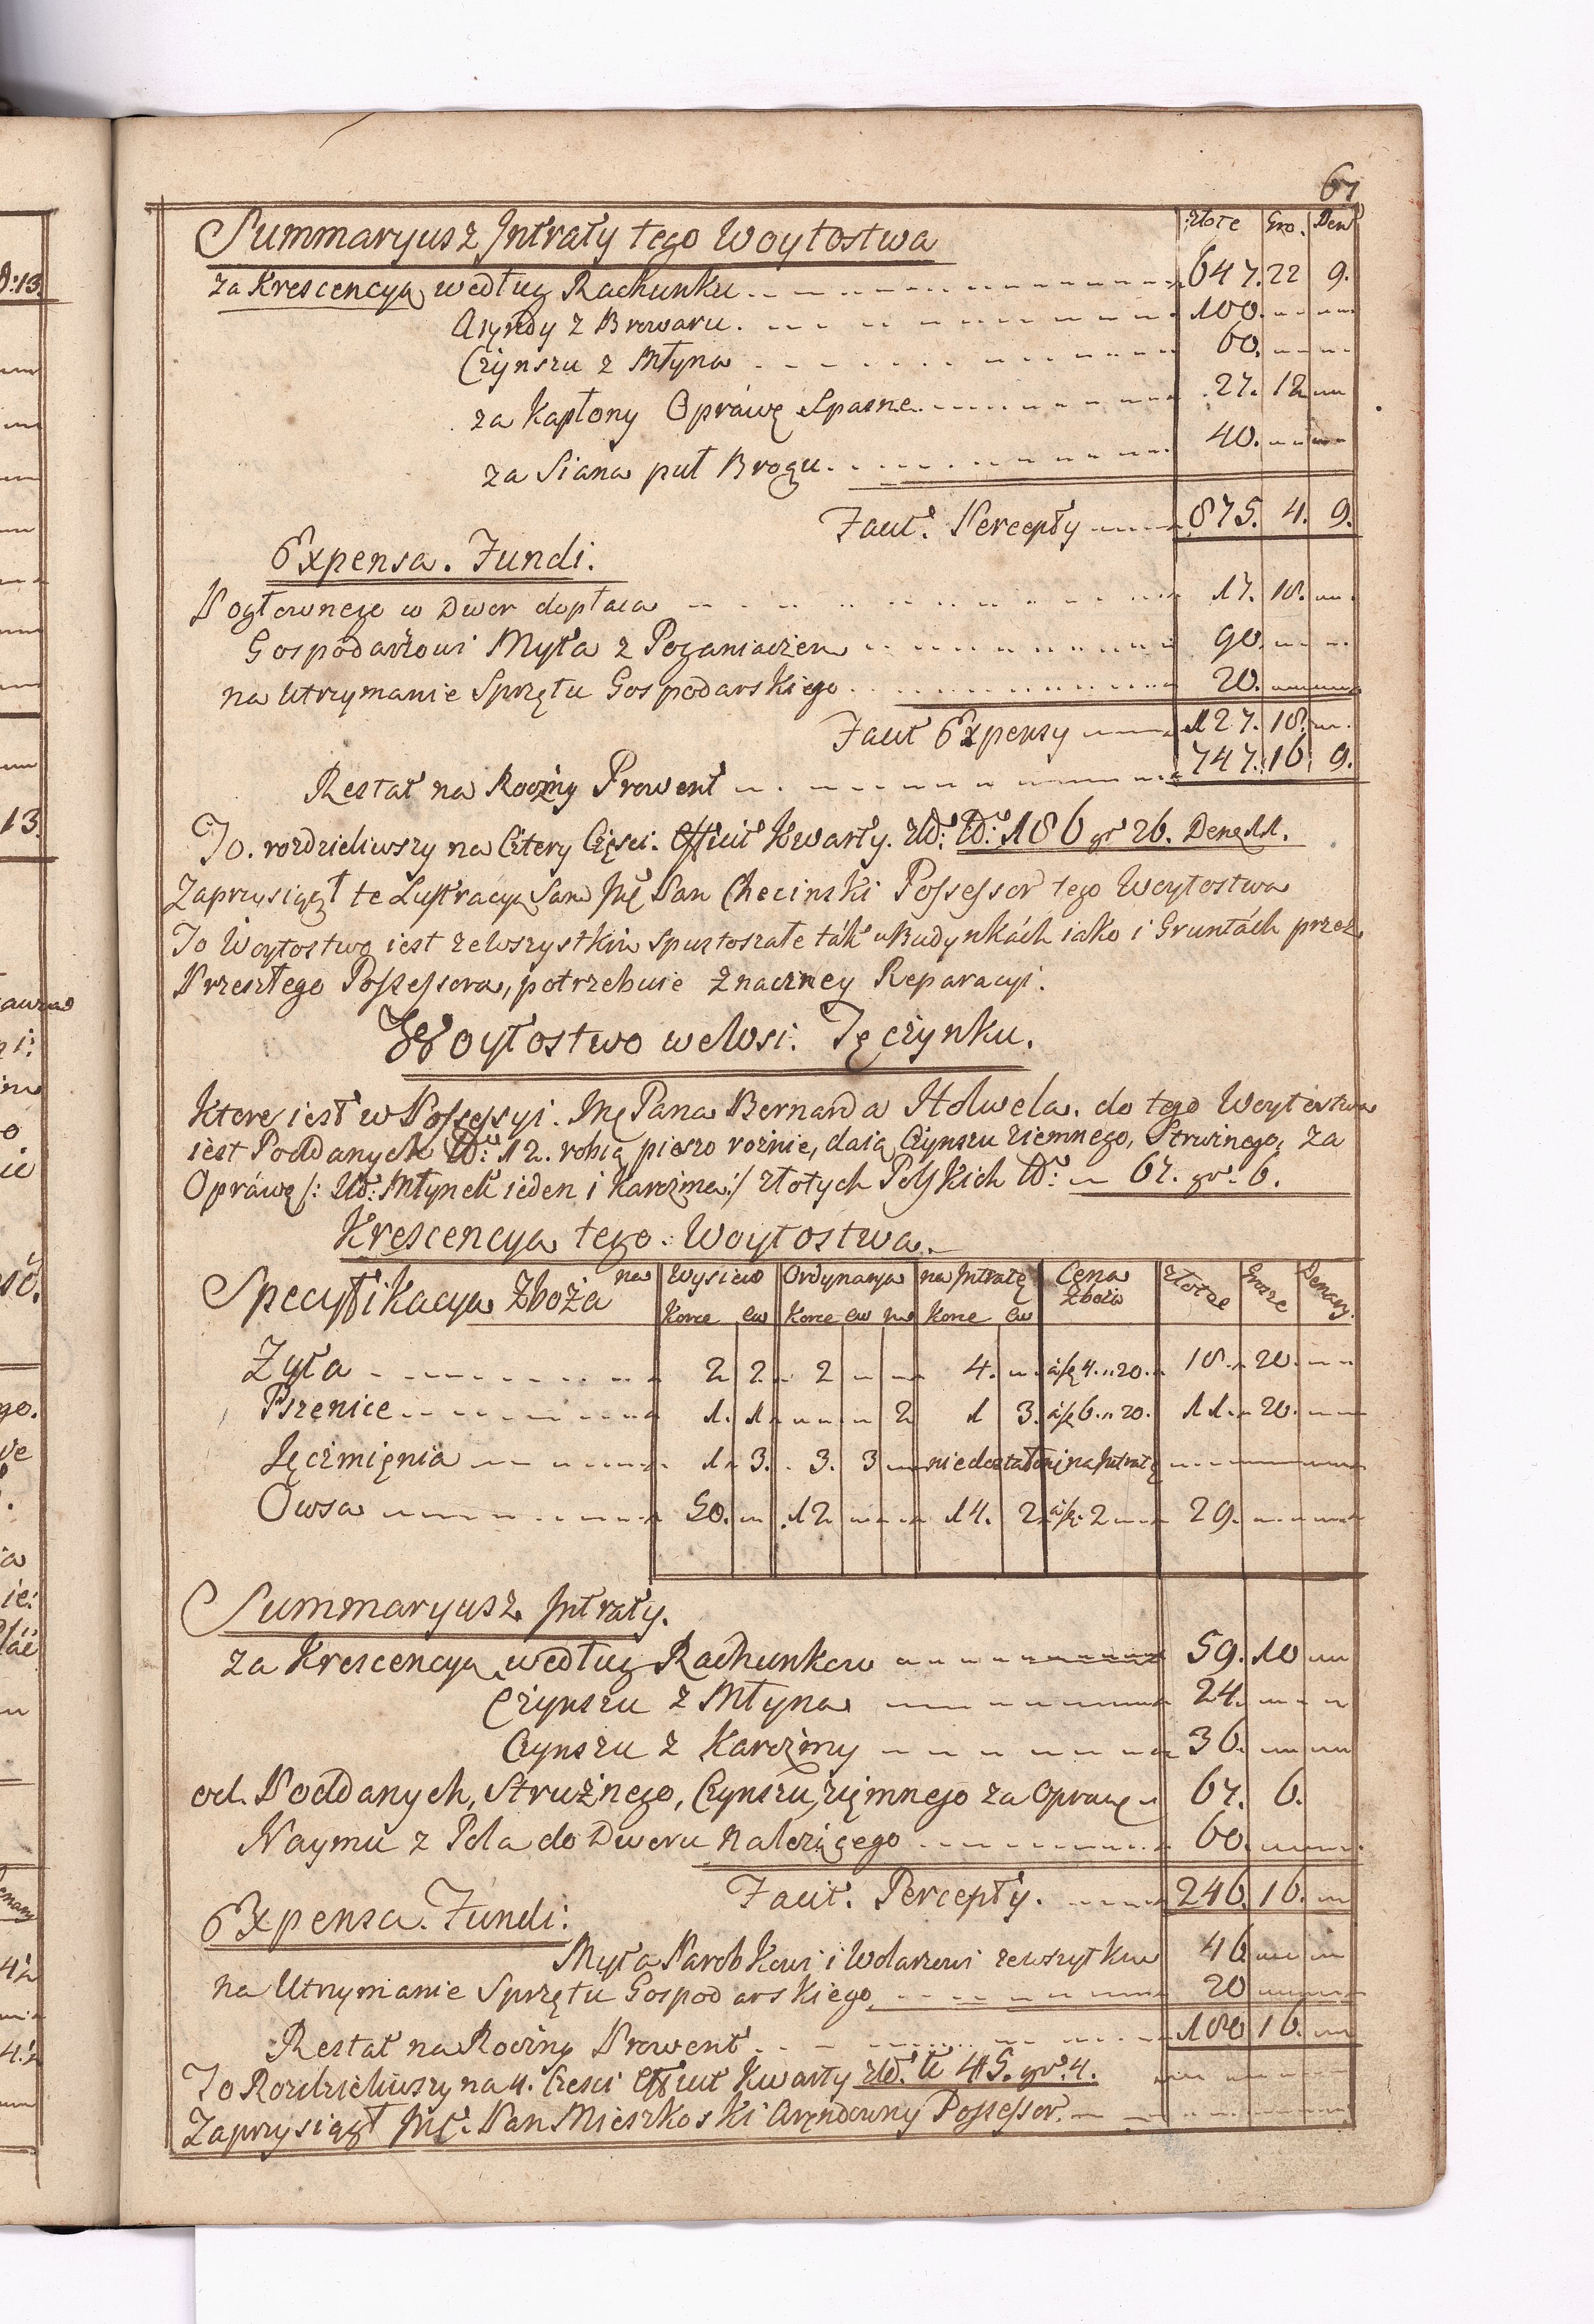 67
Summaryusz Jntraty tego Woytostwa złote Gro. Den
za Krescencyą według Rachunku 647. 22 9.
Arędy z Browaru. 100.
Czynszu z Młyna 60.
za Kapłony Oprawę Spasne 27. 12
za Siana puł Brogu. 40.
Facit. Percepty 875. 4. 9.
Expensa. Fundi.
Pogłownego w Dwor dopłaca 17. 18.
Gospodarzowi Myta z Poganiaczem 90.
na Utrzymanie Sprzętu Gospodarskiego 20.
Facit Expensy 127. 18.
Restat na Roczny Prowent 747. 16. 9.
To. rozdzieliwszy na Cztery Części. Efficit Kwarty. 186 gr 26. Dena 11.
Zaprzysiągł te Lustracyą Sam Jmę Pan Checinski Possessor tego Woytostwa
To Woytostwo iest zewszystkim spustoszałe ták w Budynkách iako i Gruntách przez
Przeszłego Possessora, potrzebuie znaczney Reparacyi.
Woytostwo we Wsi. Tęczynku.
Ktore iest w Possessyi. Jmę Pana Bernarda Holwela. do tego Woytostwa
iest Poddanych 12. robią pieszo rożnie, daią Czynszu ziemnego, Strużnego, za
Oprawę /: Młynek ieden i Karczma :/ złotych Polskich 67. gr. 6.
Krescencya tego. Woytostwa.
Specyfikacya Zboża na Wysiew Ordynarya na Jntratę Cena Zboża złote Grosze Denary.
Korce Korce Korce
Zyta 2 2. 2 4. 4. 20. 18. 20.
Pszenice 1. 1. 2 1 3. 6. 20. 11. 20.
Jęczmięnia 1 3. 3. 3 niedostało się na Jntratę
Owsa 50. 12 14. 2 2 29.
Summaryusz Jntraty.
za Krescencyą według Rachunkow 59. 10
Czynszu z Młyna 24.
Czynszu z Karczmy 36.
od. Poddanych, Strużnego, Czynszu, zięmnego za Oprawę 67. 6.
Naymu z Pola do Dworu należącego 60.
Facit. Percepty. 246. 16.
Expensa. Fundi.
Myta Parobkowi i Wolarzowi zewszytkim 46
na Utrzymanie Sprzętu Gospodarskiego 20
Restat na Roczny Prowent 180 16.
To Rozdzieliwszy na 4. Czesci Efficit Kwarty 45. gr. 4.
Zaprzysiągł Jmę. Pan Mieszkoski Arendowny Possessor.